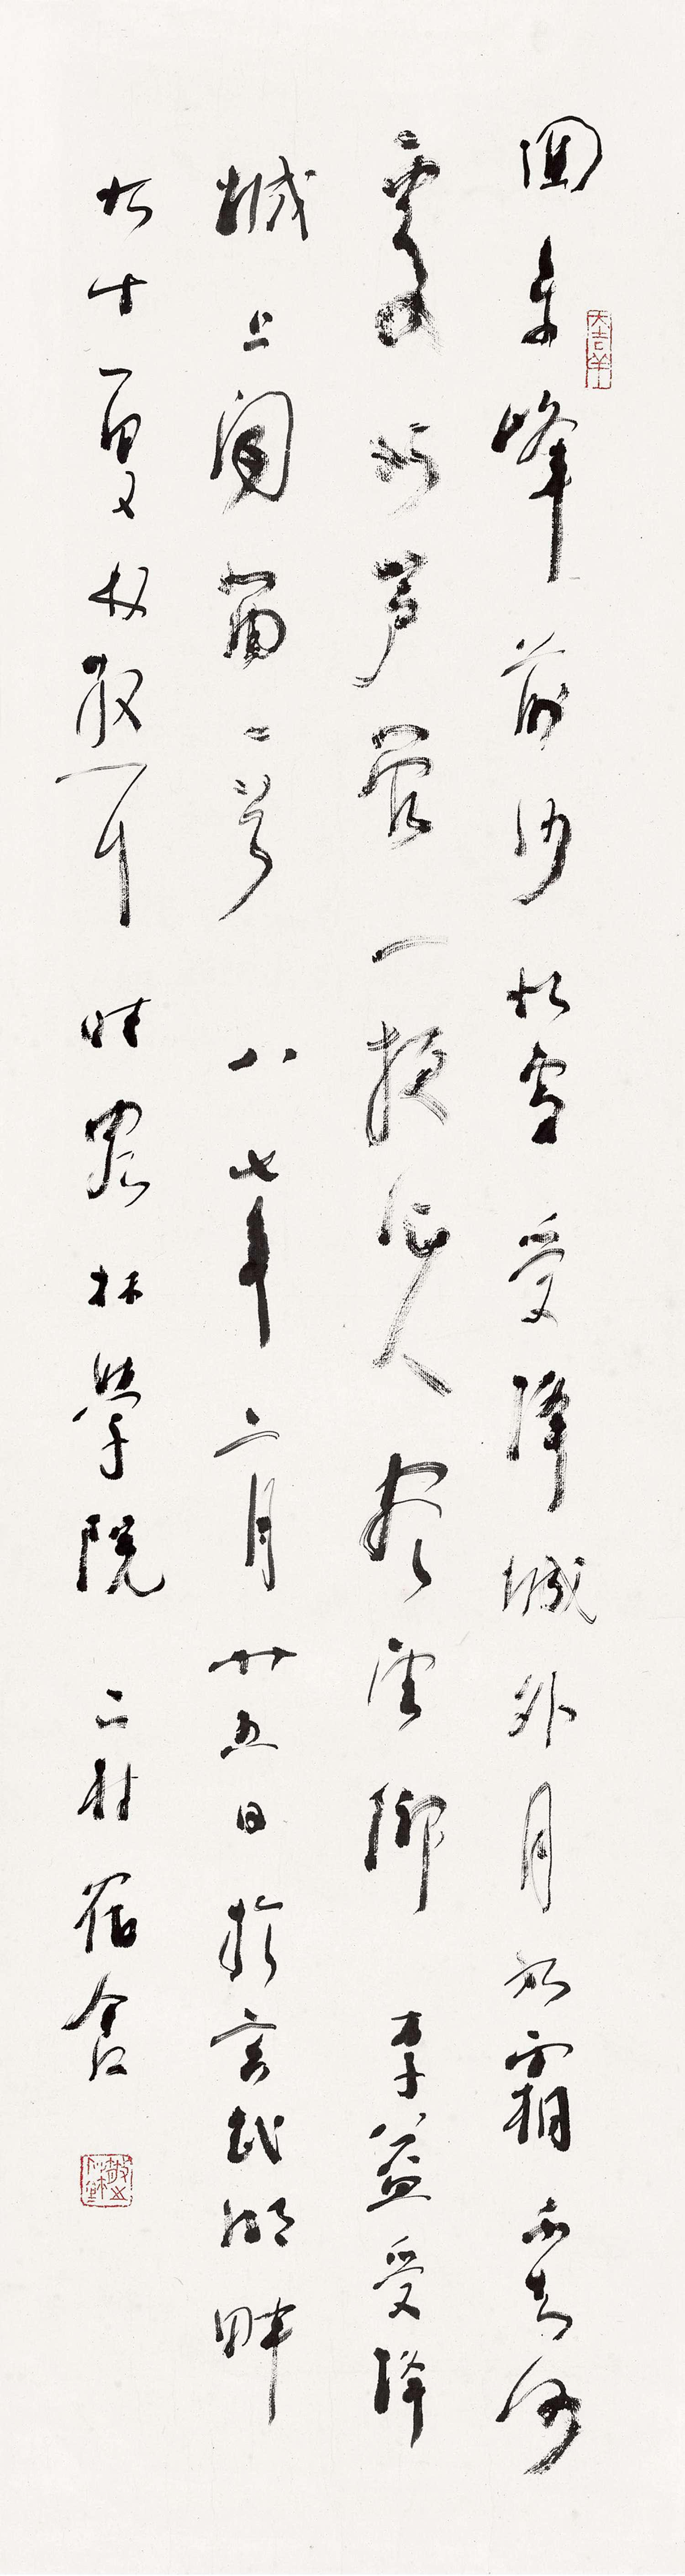 回乐峰前沙似雪受降城外月如霜不知何
處吹芦管一夜征人尽望乡李益受降
城上闻笛一首八七年二月廿五日於玄武湖畔
九十叟林散耳時寓林學院二村宿舍
大吉羊